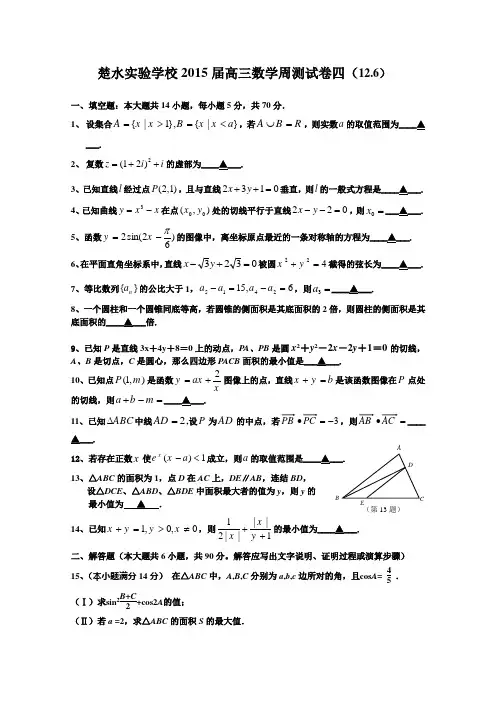 楚水实验学校2015届高三数学周测试卷四（12.6）
一、填空题：本大题共14小题，每小题5分，共70分．
1、 设集合A={x|x>1},B={x|x<a}，若A∪B=R，则实数a的取值范围为____▲
___.
2、 复数z=(1+2i)²+i的虚部为____▲___.
3、已知直线l经过点P(2,1)，且与直线2x+3y+1=0垂直，则l的一般式方程是_____▲___.
4、已知曲线y=x³−x在点(x₀,y₀)处的切线平行于直线2x−y−2=0，则x₀=____▲___.
5、函数y=2sin(2x−π/6)的图像中，离坐标原点最近的一条对称轴的方程为____▲___.
6、在平面直角坐标系中，直线x−√3y+2√3=0被圆x²+y²=4截得的弦长为____▲___.
7、等比数列{aₙ}的公比大于1，a₅−a₁=15,a₄−a₂=6，则a₃=____▲___.
8、一个圆柱和一个圆锥同底等高，若圆锥的侧面积是其底面积的2倍，则圆柱的侧面积是其
底面积的____▲___倍．
9、已知P是直线3x+4y+8=0上的动点，PA、PB是圆x²+y²−2x−2y+1=0的切线，
A、B是切点，C是圆心，那么四边形PACB面积的最小值是__▲___.
10、已知点P(1,m)是函数y=ax+2/x图像上的点，直线x+y=b是该函数图像在P点处
的切线，则a+b−m=____▲___.
11、已知∆ABC中线AD=2，设P为AD的中点，若PB→•PC→=−3，则AB→•AC→=____
▲___.
12、若存在正数x使eˣ(x−a)<1成立，则a的取值范围是____▲___.
13、△ABC的面积为1，点D在AC上，DE∥AB，连结BD，
设△DCE、△ABD、△BDE中面积最大者的值为y，则y的
最小值为__▲___.
A
D
B
E
C
（第13题）
14、已知x+y=1,y>0,x≠0，则1/(2|x|)+|x|/(y+1)的最小值为____▲___.
二、解答题（本大题共6小题，共90分。解答应写出文字说明、证明过程或演算步骤）
15、（本小题满分14分） 在△ABC中，A,B,C分别为a,b,c边所对的角，且cosA= 4/5 .
（Ⅰ）求sin²(B+C)/2+cos2A的值；
（Ⅱ）若a =2，求△ABC的面积S的最大值．